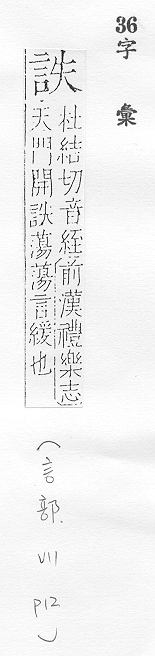 36
字彙
訣
杜結切音絰前漢禮樂志
天門開訣蕩蕩言緩也
(言部 VII P12)